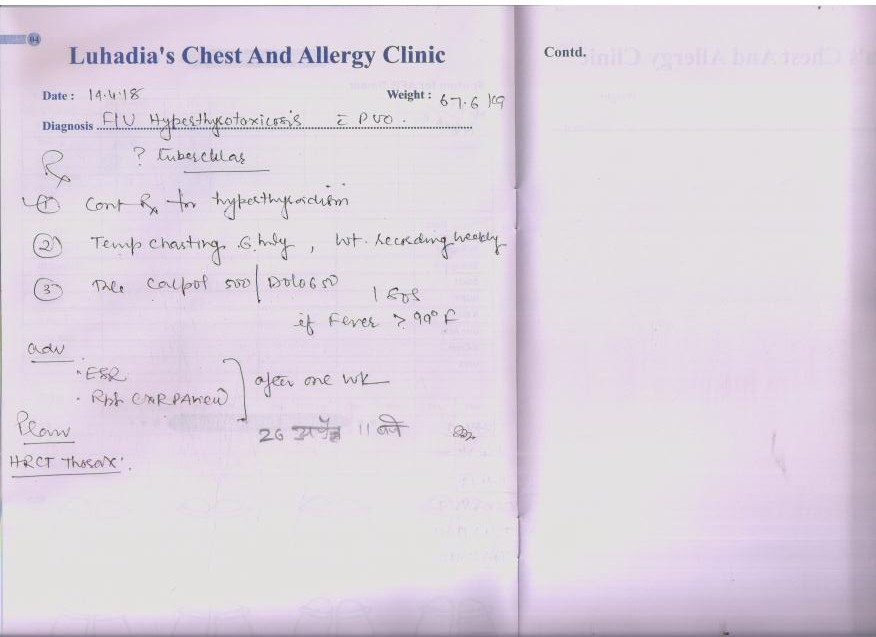 04
Luhadia's Chest And Allergy Clinic
Date : 19.4.18
Weight : 67.6 Kg
Diagnosis F/U Hyperthyrotoxicosis c̄ PUO.
? tubercular
Rx
① Cont Rx for hyperthyroidism
② Temp charting 6 hrly, wt. recording weekly
③ Tab Calpol 500 / Dolo 650
1 SOS
if Fever > 99° F
adv
• ESR
• Rpt CXR PA view
after one wk
26 अप्रैल 11 बजे
Plan
HRCT Thorax.
Contd.